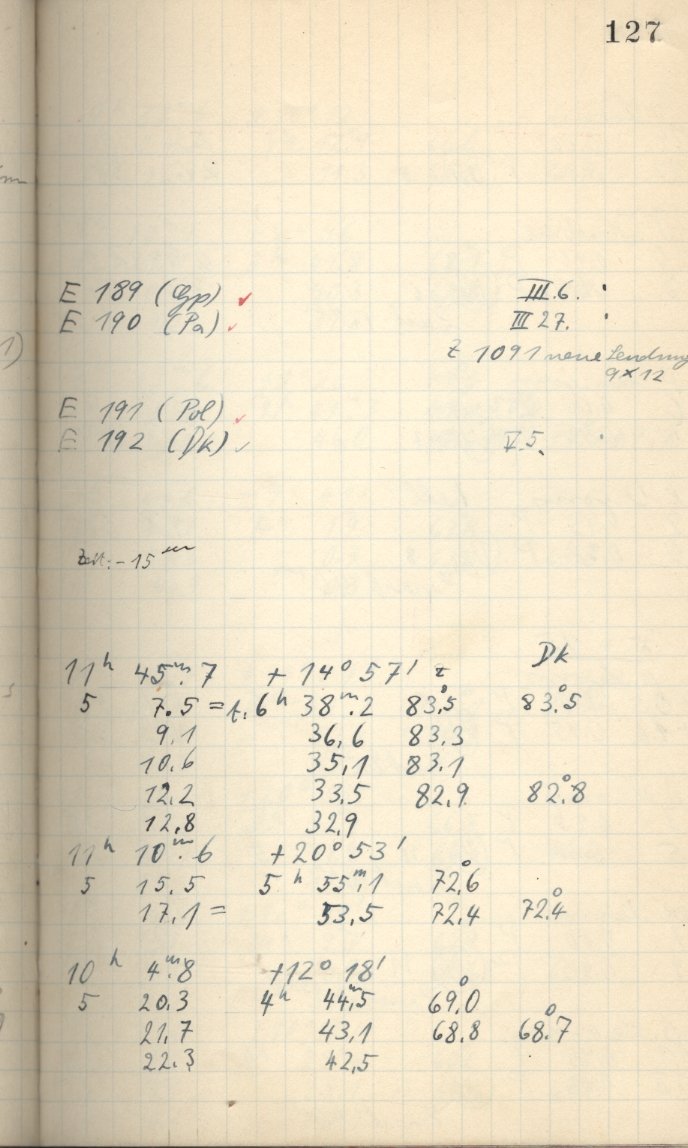 127
E 189 (Gp) ✓ III.6.
E 190 (Pa) ✓ III 27.
Z 1091 neue Sendung
9×12
E 191 (Pol) ✓
E 192 (Dk) ✓ V.5.
Zeit: -15 m
Dk
11h 45m.7 + 14° 57' z
5 7.5 = t. 6h 38m.2 83°.5 83°.5
9.1 36,6 83.3
10.6 35,1 83.1
12.2 33.5 82.9 82°.8
12,8 32,9
11h 10m.6 +20° 53'
5 15.5 5h 55m.1 72°.6
17,1 = 53,5 72.4 72°.4
10h 4m.8 +12° 18'
5 20.3 4h 44m.5 69°.0
21,7 43,1 68.8 68°.7
22.3 42,5